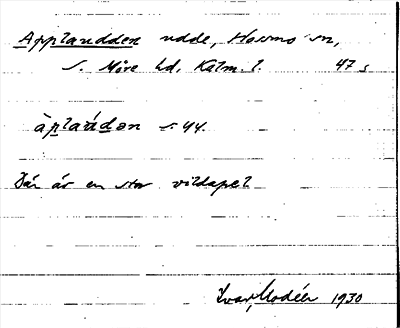 Applaudden udde, Havms sn,
S. Möre hd, Kalm. l. 47 s
àplaúdən s. 44.
Där är en stor vildapel
Ivar Modéer 1930